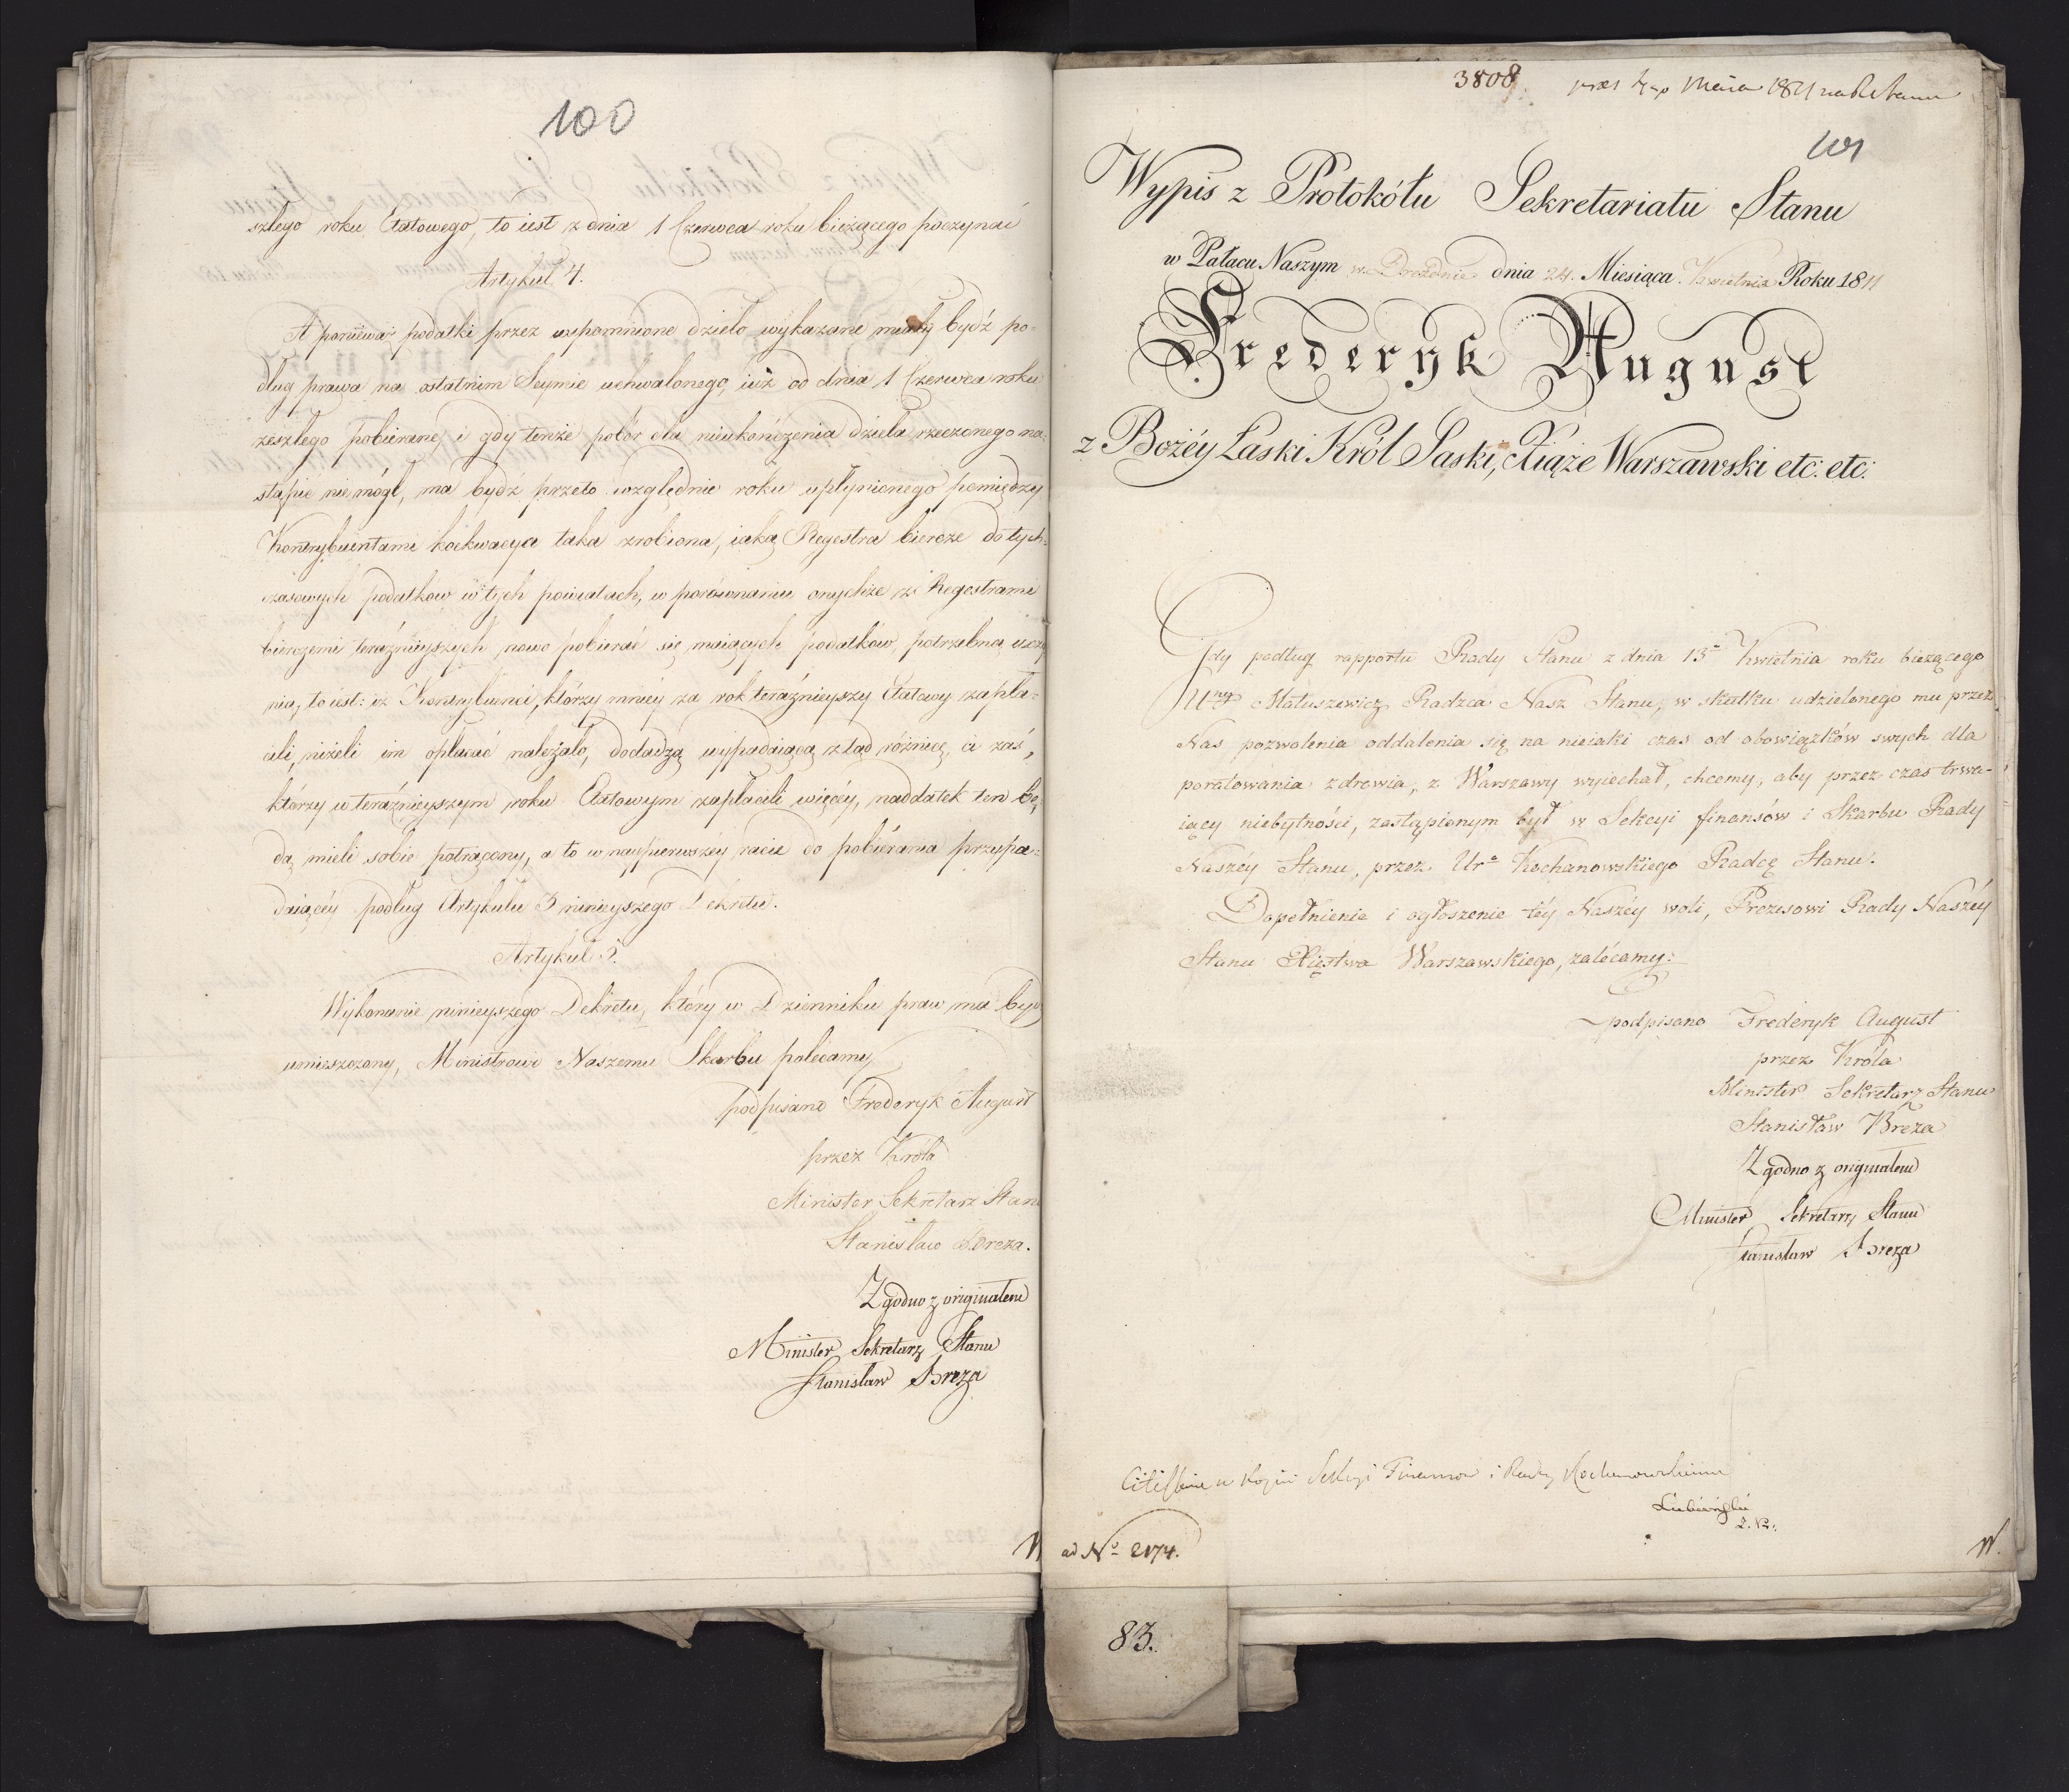 100
szłego roku Etatowego, to iest z dnia 1 Czerwca roku bieżącego poczynać
Artykuł 4.
A ponieważ podatki przez wspomnione dzieło wykazane miały bydź po-
dług prawa na ostatnim Seymie uchwalonego, iuż od dnia 1 Czerwca roku
zeszłego pobierane, i gdy tenże pobór dla nieukończenia dzieła rzeczonego na-
stąpić nie mógł, ma bydź przeto względnie roku upłynionego pomiędzy
Kontrybuentami koekwacya taka zrobiona, iaką Regestra biercze dotych-
czasowych podatków w tych powiatach, w porównaniu onychże z Regestrami
bierczemi teraźnieyszych, nowo pobierać się maiących podatków, potrzebną uczy
nią, to iest: iż Kontrybuenci, którzy mniéy za rok teraźnieyszy Etatowy zapła-
cili, niżeli im opłacać należało, dodadzą wypadaiącą ztąd różnicę, ci zaś,
którzy w teraźnieyszym roku Etatowym zapłacili więcéy, naddatek ten bę
dą mieli sobie potrącony, a to w naypierwszéy racie do pobiérania przypa-
daiącéy podług Artykułu 3 ninieyszego Dekretu.
Artykuł 5.
Wykonanie ninieyszego Dekretu, który w Dzienniku praw ma bydź
umieszczony, Ministrowi Naszemu Skarbu polecamy,
podpisano Frederyk August
przez Króla
Minister Sekretarz Stanu
Stanisław Breza.
Zgodno z originałem
Minister Sekretarz Stanu
Stanisław Breza
3808
Maia 1811
101
Wypis z Protokółu Sekretariatu Stanu
w Pałacu Naszym w Dreźdnie dnia 24. Miesiąca Kwietnia Roku 1811
Frederyk August
z Bożéy Łaski Król Saski, Xiąże Warszawski etc: etc:
Gdy podług rapportu Rady Stanu z dnia 13º Kwietnia roku bieżącego
Urny Matuszewicz Radzca Nasz Stanu, w skutku udzielonego mu przez
Nas pozwolenia oddalenia się na nieiaki czas od obowiązków swych dla
poratowania zdrowia, z Warszawy wyiechał, chcemy, aby przez czas trwa-
iący niebytności, zastąpionym był w Sekcyi finansów i Skarbu Rady
Naszéy Stanu, przez Urº Kochanowskiego Radcę Stanu.
Dopełnienie i ogłoszenie téy Naszéy woli, Prezesowi Rady Naszéy
Stanu Xięstwa Warszawskiego, zalécamy.
podpisano Frederyk August
przez Króla
Minister Sekretarz Stanu
Stanisław Breza
Zgodno z originałem
Minister Sekretarz Stanu
Stanisław Breza
w Kopii Sekcyi Finansow i Kochanowskiemu
Łubieński
W.
ad Nº 2174.
83.